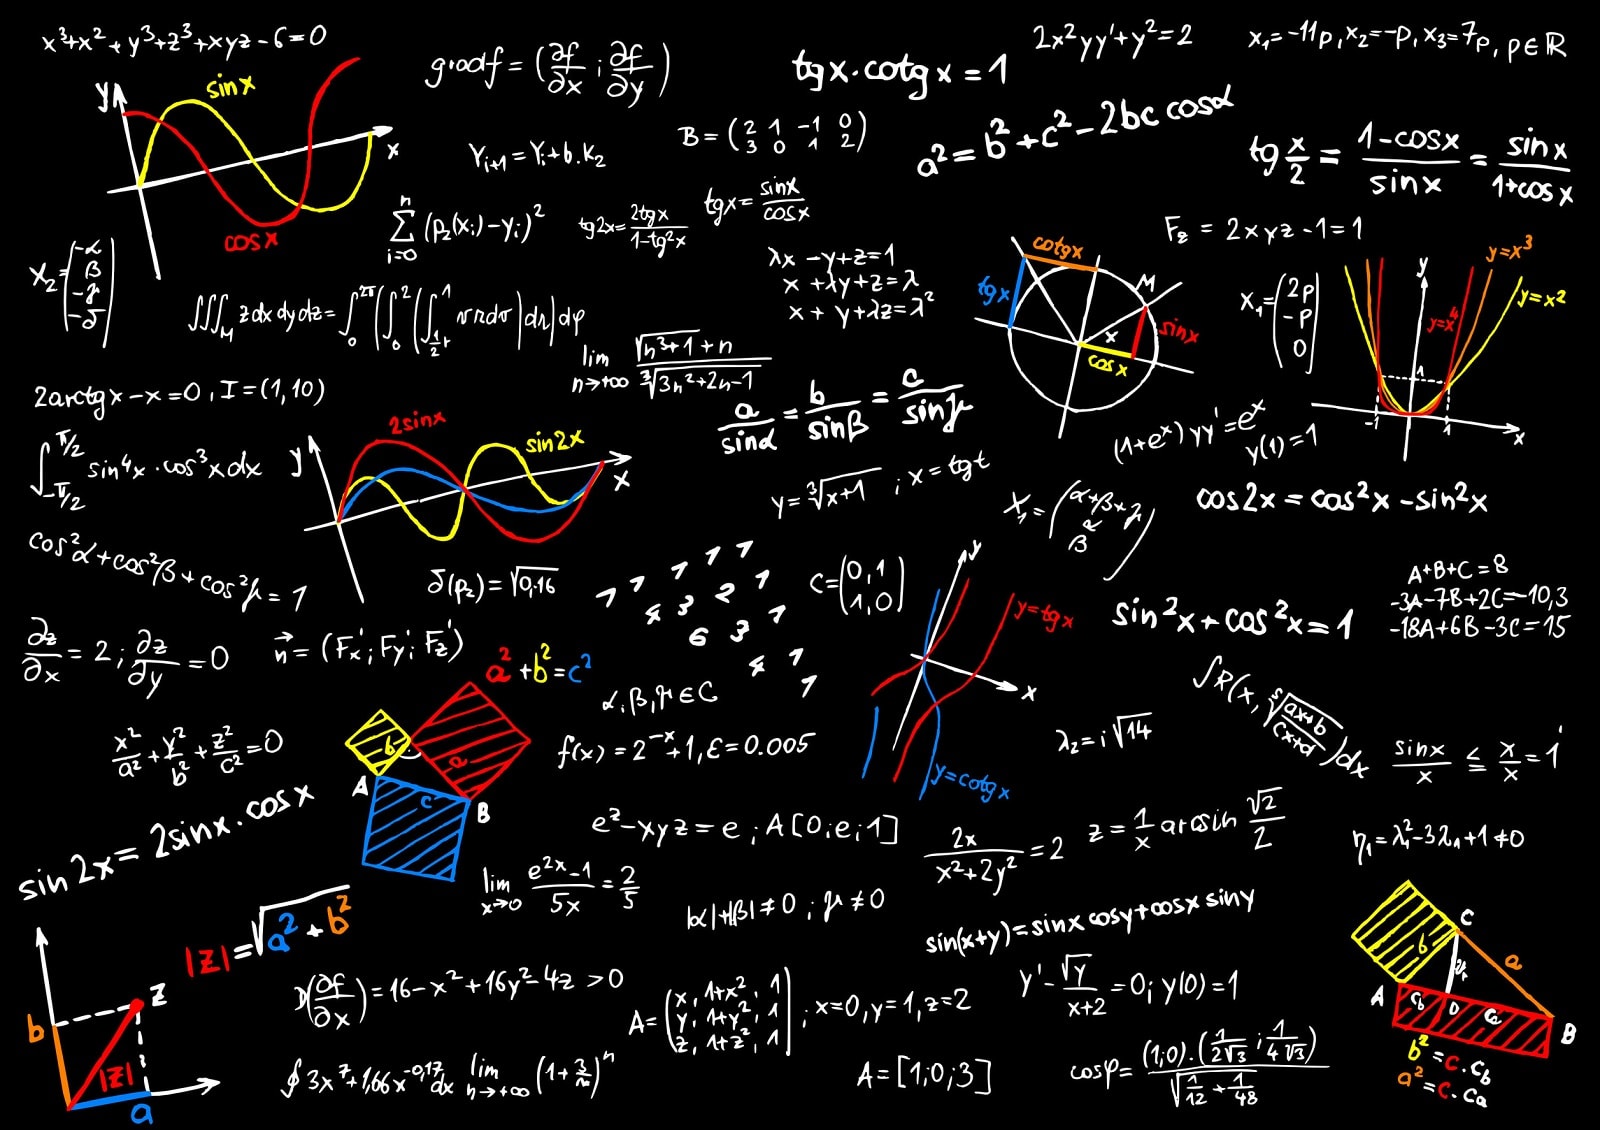 x³+x²+y³+z³+xyz-6=0
y
sin x
x
cos x
gradf = (∂f/∂x ; ∂f/∂y)
tgx·cotgx = 1
2x²yy'+y²=2
x₁=-11p, x₂=-p, x₃=7p, p∈ℝ
Y_{i+1} = Y_i + b·K₂
B = (2 1 -1 0
3 0 1 2)
a² = b²+c²-2bc cosα
tg x/2 = (1-cosx)/sinx = sinx/(1+cosx)
∑_{i=0}^{n} (p₂(x_i)-y_i)²
tg2x = 2tgx/(1-tg²x)
tgx = sinx/cosx
F_z = 2xyz-1=1
X₂ = (-α
β
-γ
-δ)
λx -y+z=1
x +λy+z=λ
x + y+λz=λ²
cotgx
tgx
M
sinx
x
cosx
X₁ = (2p
-p
0)
y
y=x³
y=x²
y=x⁴
1
-1
1
x
lim_{n→+∞} (√(n³+1)+n)/∛(3n²+2n-1)
2arctgx-x=0, I=(1,10)
a/sinα = b/sinβ = c/sinγ
(1+eˣ)yy'=eˣ
y(1)=1
∫_{-π/2}^{π/2} sin⁴x·cos³xdx
y
2sinx
sin2x
x
y=∛(x+1) ; x=tgt
cos2x = cos²x-sin²x
cos²α+cos²β+cos²γ=1
∂(p₂)=√0,16
1 1 1 1 1
4 3 2 1
6 3 1
4 1
1
C=(0,1
1,0)
y
y=tgx
x
y=cotgx
sin²x+cos²x=1
A+B+C=8
-3A-7B+2C=-10,3
-18A+6B-3C=15
∂z/∂x = 2 ; ∂z/∂y = 0
n⃗ = (Fx'; Fy'; Fz')
a²+b²=c²
b
a
A
c
B
α,β,γ∈C
∫R(x, ⁵√((ax+b)/(cx+d)))dx
x²/a²+y²/b²+z²/c²=0
f(x)=2⁻ˣ+1, ε=0.005
λ₂=i√14
sinx/x ≤ x/x = 1
sin2x = 2sinx·cosx
e^z-xyz=e ; A[0;e;1]
2x/(x²+2y²)=2
z = 1/x arcsin √2/2
η₁=λ₁²-3λ₁+1≠0
lim_{x→0} (e^{2x}-1)/5x = 2/5
|α|+|β|≠0 ; γ≠0
sin(x+y)=sinx cosy+cosx siny
|z|=√(a²+b²)
z
b
|z|
a
D(∂f/∂x)=16-x²+16y²-4z >0
A=(x, 1+x², 1
y, 1+y², 1
z, 1+z², 1) ; x=0, y=1, z=2
y'-√y/(x+2)=0; y(0)=1
C
b
a
A
c_b
D
c_a
B
b²=c·c_b
a²=c·c_a
∮3x⁷+1,66x^{-0,17}dx
lim_{n→+∞} (1+3/n)ⁿ
A=[1;0;3]
cosφ = (1;0)·(1/(2√3) ; 1/(4√3))/√(1/12+1/48)